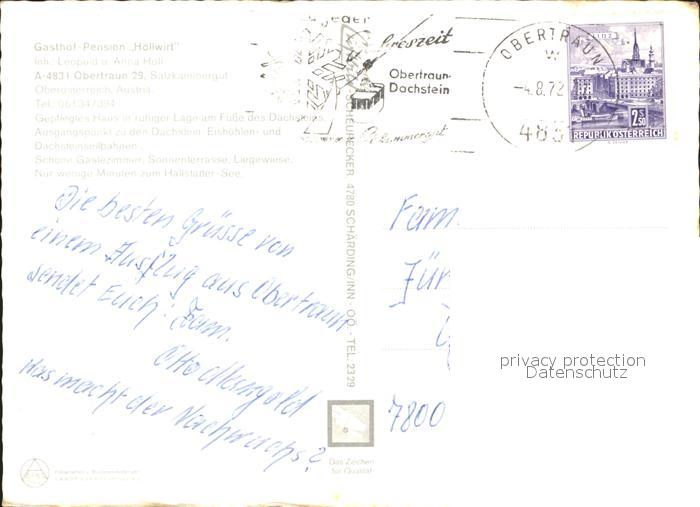 Gasthof-Pension „Höllwirt"
Inh. Leopold u. Anna Höll
A-4831 Obertraun 29, Salzkammergut
Oberösterreich, Austria.
Tel. 06134/394
Gepflegtes Haus in ruhiger Lage am Fuße des Dachsteins.
Ausgangspunkt zu den Dachstein-Eishöhlen- und
Dachsteinseilbahnen.
Schöne Gästezimmer, Sonnenterrasse, Liegewiese.
Nur wenige Minuten zum Hallstätter-See.
Die besten Grüsse von
einem Ausflug aus Obertraun
sendet Euch: Fam.
Was macht der Nachwuchs?
Obertraun-
Dachstein
OBERTRAUN
-4.8.72
483
LINZ
2.50
REPUBLIK ÖSTERREICH
4780 SCHÄRDING/INN · OÖ. · TEL. 23 29
Fam.
Für
7800
privacy protection
Datenschutz
Das Zeichen
für Qualität